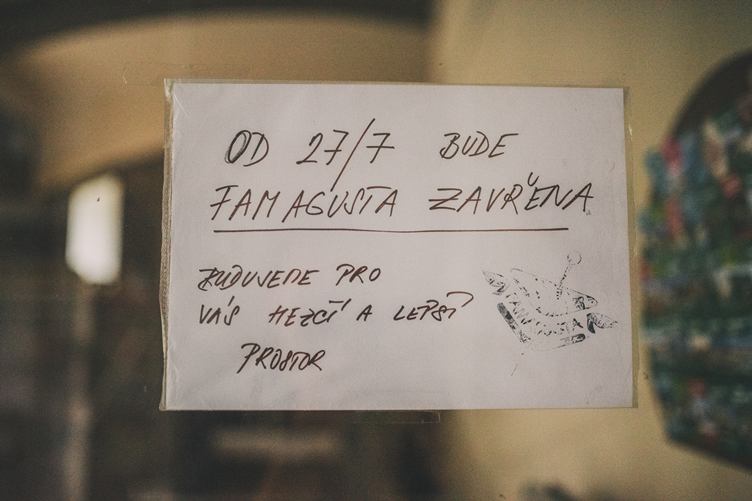 OD 27/7 BUDE
FAMAGUSTA ZAVŘENA
BUDUJEME PRO
VÁS HEZČÍ A LEPŠÍ
PROSTOR
FAMAGUSTA